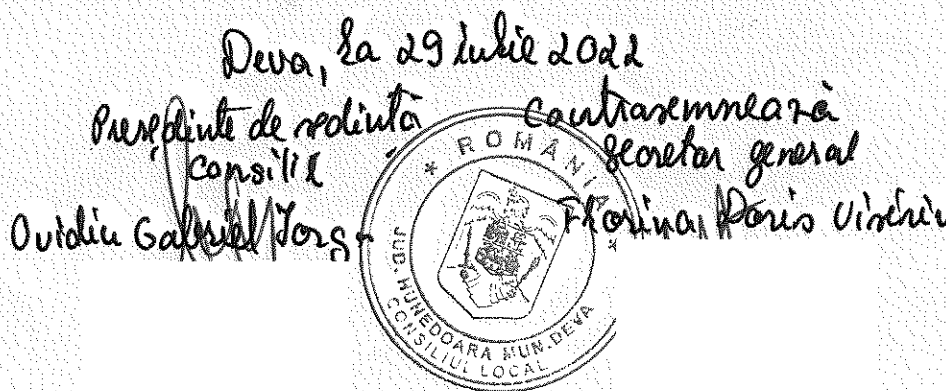 Deva, la 29 iulie 2022
Președinte de ședință
consilier
Ovidiu Gabriel Iorga
Contrasemnează
Secretar general
Florina Doris Visirin
* ROMÂNIA *
JUD. HUNEDOARA MUN. DEVA
CONSILIUL LOCAL